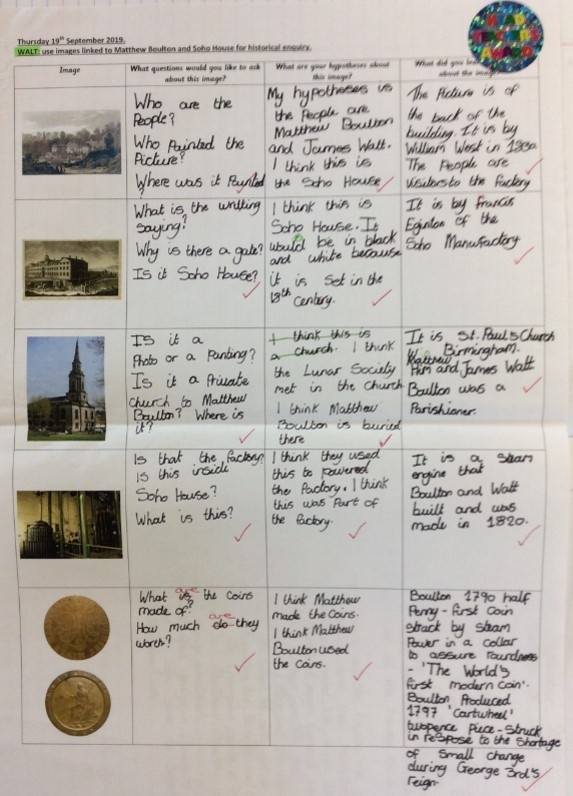 Thursday 19th September 2019.
WALT: use images linked to Matthew Boulton and Soho House for historical enquiry.
HEAD
TEACHER'S
AWARD
Image
What questions would you like to ask
about this image?
What are your hypotheses about
this image?
What did you
about the
Who are the
People?
Who Painted the
Picture?
Where was it Painted
My hypotheses is
the People are
Matthew Boulton
and James Watt.
I think this is
the Soho House
The Picture is of
the back of the
building. It is by
William West in
The People are
visitors to the factory
What is the writting
saying?
Why is there a gate?
Is it Soho House?
I think this is
Soho House. It
would be in black
and white because
it is set in the
18th Century.
It is by Francis
Eginton of the
Soho Manufactory
Is it a
Photo or a Panting?
Is it a Private
church to Matthew
Boulton? Where is
it?
I think this is
a church. I think
the Lunar Society
met in the church
I think Matthew
Boulton is buried
there
It is St. Paul's Church
Birmingham.
Matthew
Him and James Watt
Boulton was a
Parishioner.
Is that the factory?
Is this inside
Soho House?
What is this?
I think they used
this to powered
the factory. I think
this was Part of
the factory.
It is a Steam
engine that
Boulton and Watt
built and was
made in 1820.
are
What is the Coins
made of?
are
How much do they
worth?
I think Matthew
made the Coins.
I think Matthew
Boulton used
the Coins.
Boulton 1790 half
Penny - first Coin
struck by steam
Power in a collar
to assure roundness
- 'The World's
first modern coin'.
Boulton Produced
1797 'Cartwheel'
twopence piece - Struck
in respose to the Shortage
of Small change
during George 3rd's
reign